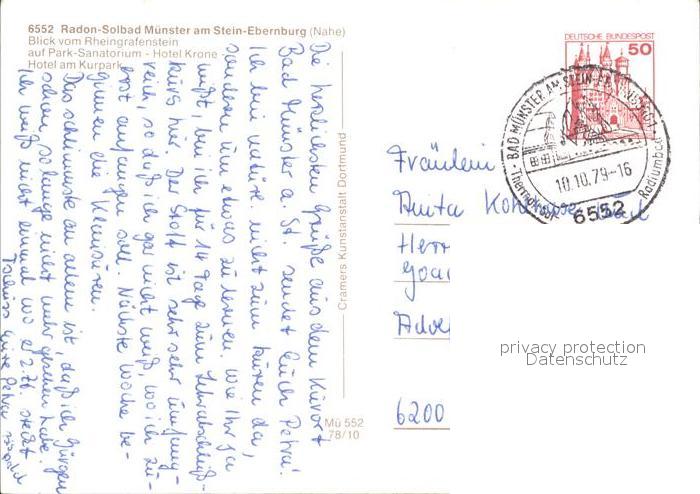 6552 Radon-Solbad Münster am Stein-Ebernburg (Nahe)
Blick vom Rheingrafenstein
auf Park-Sanatorium - Hotel Krone -
Hotel am Kurpark
Die herzlichsten Grüße aus dem Kurort
Bad Münster a. St. sendet Euch Petra!
Ich bin natürl. nicht zum Kuren da,
sondern um etwas zu lernen. Wie Ihr ja
wißt, bin ich für 14 Tage zum
kurs hier. Der Stoff ist sehr sehr umfang-
reich, so daß ich gar nicht weiß, wo ich zu-
erst anfangen soll. Nächste Woche be-
ginnen die Klausuren.
Das schlimmste an allem ist, daß ich Jürgen
schon so lange nicht mehr gesehen habe.
Ich weiß nicht einmal wo er z.Zt. steckt
Tschüss Eure Petra
Cramers Kunstanstalt Dortmund
Mü 552
78/10
DEUTSCHE BUNDESPOST
50
BAD MÜNSTER AM STEIN-EBERNBURG 1
10.10.79-16
Radiumbad
6552
Fräulein
Anita
Herr
Adol
6200
privacy protection
Datenschutz